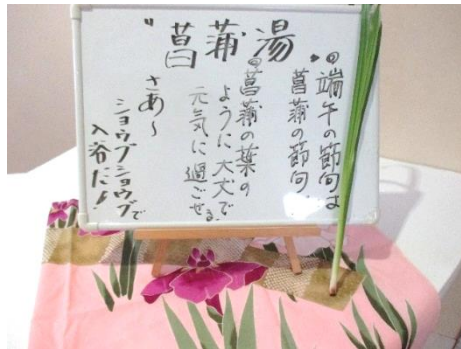 菖蒲湯
端午の節句は
菖蒲の節句
菖蒲の葉の
ように大丈で
元気に過ごせる
さあ～
ショウブショウブで
入浴だ!